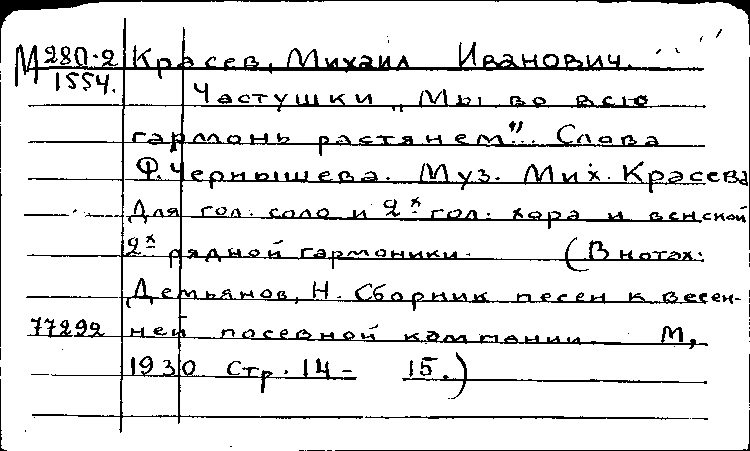 М 280-2 Красев, Михаил Иванович.
1554.
Частушки „Мы во всю
гармонь растянем”. Слова
Ф. Чернышева. Муз. Мих. Красева
Для гол. соло и 2х гол. хора и венской
2х рядной гармоники. (В нотах:
Демьянов, Н. Сборник песен к весен-
77292 ней посевной кампании. М,
1930 Стр. 14 - 15.)